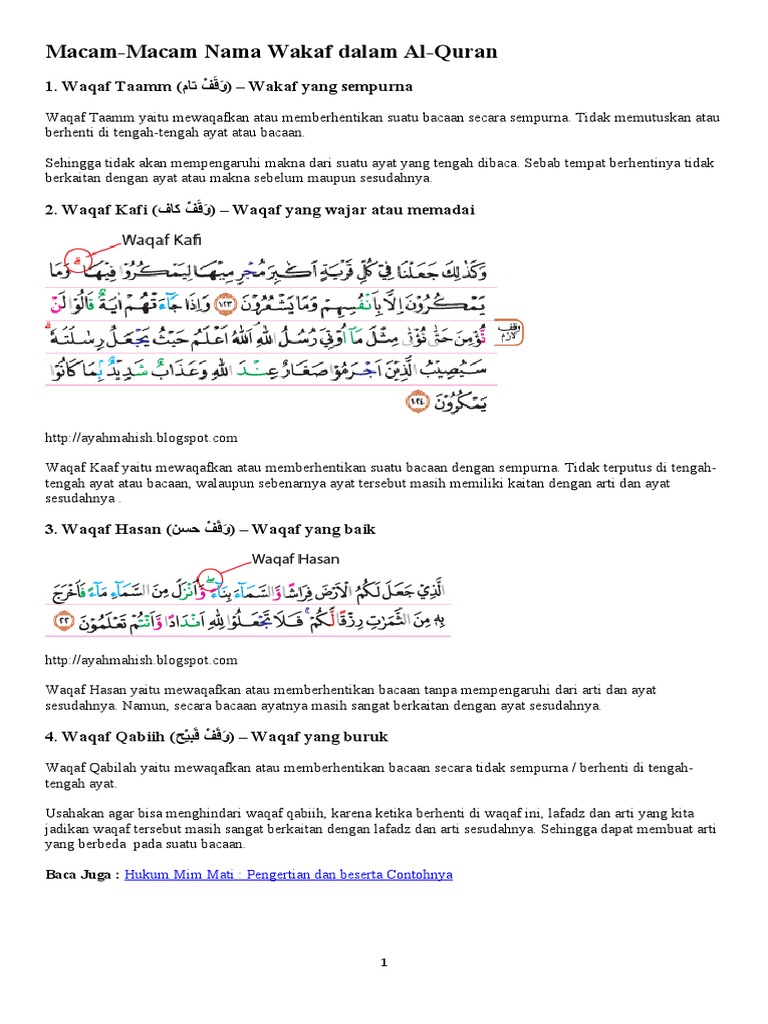 Macam-Macam Nama Wakaf dalam Al-Quran
1. Waqaf Taamm (وَقَفْ تام) – Wakaf yang sempurna
Waqaf Taamm yaitu mewaqafkan atau memberhentikan suatu bacaan secara sempurna. Tidak memutuskan atau
berhenti di tengah-tengah ayat atau bacaan.
Sehingga tidak akan mempengaruhi makna dari suatu ayat yang tengah dibaca. Sebab tempat berhentinya tidak
berkaitan dengan ayat atau makna sebelum maupun sesudahnya.
2. Waqaf Kafi (وَقَفْ كاف) – Waqaf yang wajar atau memadai
Waqaf Kafi
وَكَذٰلِكَ جَعَلْنَا فِيْ كُلِّ قَرْيَةٍ اَكٰبِرَ مُجْرِمِيْهَا لِيَمْكُرُوْا فِيْهَاۗ وَمَا
يَمْكُرُوْنَ اِلَّا بِاَنْفُسِهِمْ وَمَا يَشْعُرُوْنَ ١٢٣ وَاِذَا جَاۤءَتْهُمْ اٰيَةٌ قَالُوْا لَنْ
نُّؤْمِنَ حَتّٰى نُؤْتٰى مِثْلَ مَآ اُوْتِيَ رُسُلُ اللّٰهِ ۘ اَللّٰهُ اَعْلَمُ حَيْثُ يَجْعَلُ رِسٰلَتَهٗۗ
وقف لازم
سَيُصِيْبُ الَّذِيْنَ اَجْرَمُوْا صَغَارٌ عِنْدَ اللّٰهِ وَعَذَابٌ شَدِيْدٌۢ بِمَا كَانُوْا
يَمْكُرُوْنَ ١٢٤
http://ayahmahish.blogspot.com
Waqaf Kaaf yaitu mewaqafkan atau memberhentikan suatu bacaan dengan sempurna. Tidak terputus di tengah-
tengah ayat atau bacaan, walaupun sebenarnya ayat tersebut masih memiliki kaitan dengan arti dan ayat
sesudahnya .
3. Waqaf Hasan (وَقَفْ حسن) – Waqaf yang baik
Waqaf Hasan
الَّذِيْ جَعَلَ لَكُمُ الْاَرْضَ فِرَاشًا وَّالسَّمَاۤءَ بِنَاۤءً ۖوَّاَنْزَلَ مِنَ السَّمَاۤءِ مَاۤءً فَاَخْرَجَ
بِهٖ مِنَ الثَّمَرٰتِ رِزْقًا لَّكُمْ ۚ فَلَا تَجْعَلُوْا لِلّٰهِ اَنْدَادًا وَّاَنْتُمْ تَعْلَمُوْنَ ٢٢
http://ayahmahish.blogspot.com
Waqaf Hasan yaitu mewaqafkan atau memberhentikan bacaan tanpa mempengaruhi dari arti dan ayat
sesudahnya. Namun, secara bacaan ayatnya masih sangat berkaitan dengan ayat sesudahnya.
4. Waqaf Qabiih (وَقَفْ قَبِيْح) – Waqaf yang buruk
Waqaf Qabilah yaitu mewaqafkan atau memberhentikan bacaan secara tidak sempurna / berhenti di tengah-
tengah ayat.
Usahakan agar bisa menghindari waqaf qabiih, karena ketika berhenti di waqaf ini, lafadz dan arti yang kita
jadikan waqaf tersebut masih sangat berkaitan dengan lafadz dan arti sesudahnya. Sehingga dapat membuat arti
yang berbeda  pada suatu bacaan.
Baca Juga : Hukum Mim Mati : Pengertian dan beserta Contohnya
1